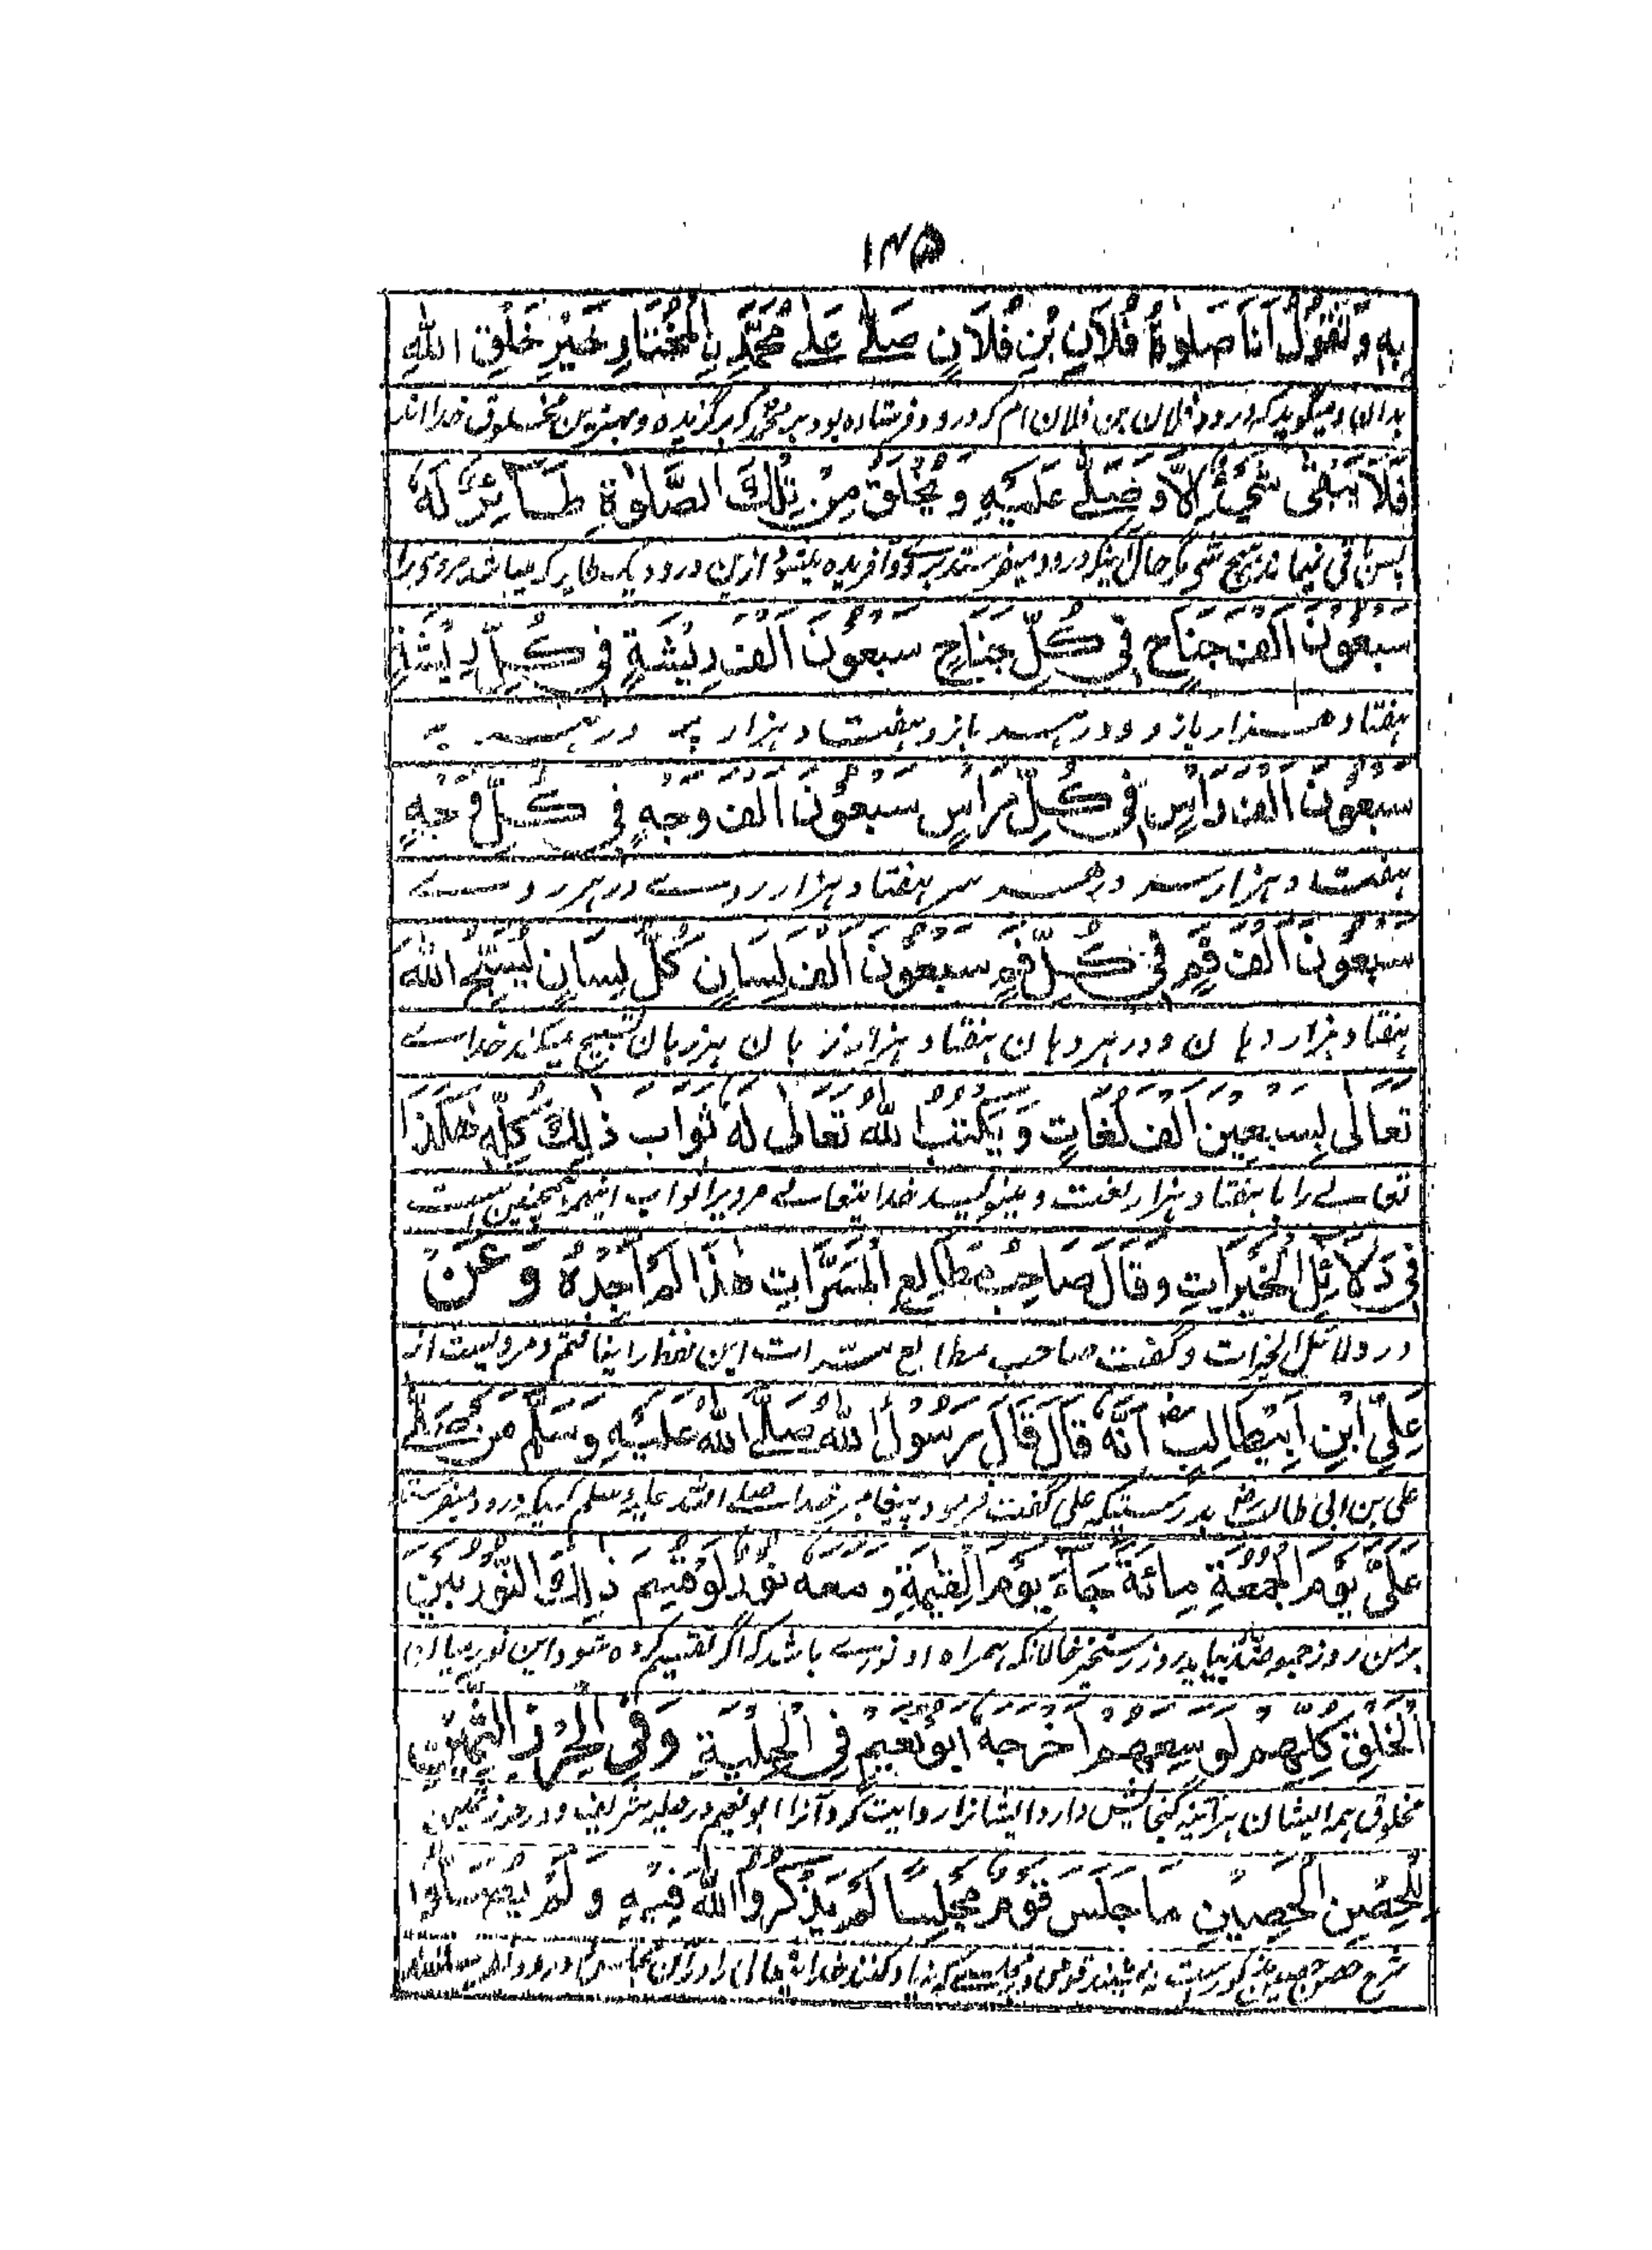 ۱۴۵
بِهٖ وَتَقُوْلُ اَنَا صَلٰوةُ فُلَانِ بْنِ فُلَانٍ صَلّٰے عَلٰے مُحَمَّدِ نِالْمُخْتَارِ خَيْرِ خَلْقِ اللّٰهِ
بدان و میگوید که درود فلان بن فلان ام که درود فرستاده بود بر محمد که برگزیده و بهترین مخلوق خدا اند
فَلَا يَبْقٰى شَيْءٌ اِلَّا وَصَلّٰے عَلَيْهِ وَيُخْلَقُ مِنْ تِلْكَ الصَّلٰوةِ طَائِرٌ لَهٗ
پس باقی نیماند هیچ شی مگر حال اینکه درود میفرستد بر وے و آفریده میشود ازین درود یک طایر که میباشد مرو را
سَبْعُوْنَ اَلْفَ جَنَاحٍ فِيْ كُلِّ جَنَاحٍ سَبْعُوْنَ اَلْفَ رِيْشَةٍ فِيْ كُلِّ رِيْشَةٍ
هفتاد هزار بازو و در هر بازو هفتاد هزار پر در هر پر
سَبْعُوْنَ اَلْفَ رَاْسٍ فِيْ كُلِّ رَاْسٍ سَبْعُوْنَ اَلْفَ وَجْهٍ فِيْ كُلِّ وَجْهٍ
هفتاد هزار سر در هر سر هفتاد هزار روے در هر روے
سَبْعُوْنَ اَلْفَ فَمٍ فِيْ كُلِّ فَمٍ سَبْعُوْنَ اَلْفَ لِسَانٍ كُلُّ لِسَانٍ يُسَبِّحُ اللّٰهَ
هفتاد هزار دهان و در هر دهان هفتاد هزار زبان هر زبان تسبیح میکند خداے
تَعَالٰى بِسَبْعِيْنَ اَلْفَ لُغَاتٍ وَيَكْتُبُ اللّٰهُ تَعَالٰى لَهٗ ثَوَابَ ذٰلِكَ كُلِّهٖ هٰكَذَا
تعالے را با هفتاد هزار لغت و مینویسد خدایتعالے مرویرا ثواب اینهمه همچنین ست
فِيْ دَلَائِلِ الْخَيْرَاتِ وَقَالَ صَاحِبُ مَطَالِعِ الْمَسَرَّاتِ هٰذَا لَمْ اَجِدْهُ وَعَنْ
در دلائل الخیرات و گفت صاحب مطالع مسرات این لفظ را نیافتم و مرویست از
عَلِيِّ ابْنِ اَبِيْطَالِبٍ رض اَنَّهٗ قَالَ قَالَ رَسُوْلُ اللّٰهِ صَلَّے اللّٰهُ عَلَيْهِ وَسَلَّمَ مَنْ صَلّٰے
علی بن ابی طالب رض بدرستیکه علی گفت فرمود پیغامبر خدا صلے الله علیه وسلم کسیکه درود میفرستد
عَلَيَّ يَوْمَ الْجُمُعَةِ مِائَةً جَاءَ يَوْمَ الْقِيٰمَةِ وَمَعَهٗ نُوْرٌ لَوْ قُسِّمَ ذٰلِكَ النُّوْرُ بَيْنَ
بر من روز جمعه صد بیاید روز رستخیز حالانکه همراه او نورے باشد که اگر تقسیم کرده شود این نور میان
الْخَلْقِ كُلِّهِمْ لَوَسِعَهُمْ اَخْرَجَهٗ اَبُوْ نُعَيْمٍ فِي الْحِلْيَةِ وَفِي الْحِرْزِ الثَّمِيْنِ
مخلوق همه ایشان هرآئینه گنجایش دارد ایشانرا روایت کرد آنرا ابو نعیم در حلیه شریف و در حرز ثمین
لِلْحِصْنِ الْحَصِيْنِ مَا جَلَسَ قَوْمٌ مَجْلِسًا لَمْ يَذْكُرُوا اللّٰهَ فِيْهِ وَلَمْ يُصَلُّوْا
شرح حصن حصین مذکور ست نه نشیند قومی در مجلسے که نه یاد کنند خدا تعالی را در ان مجلس و درود